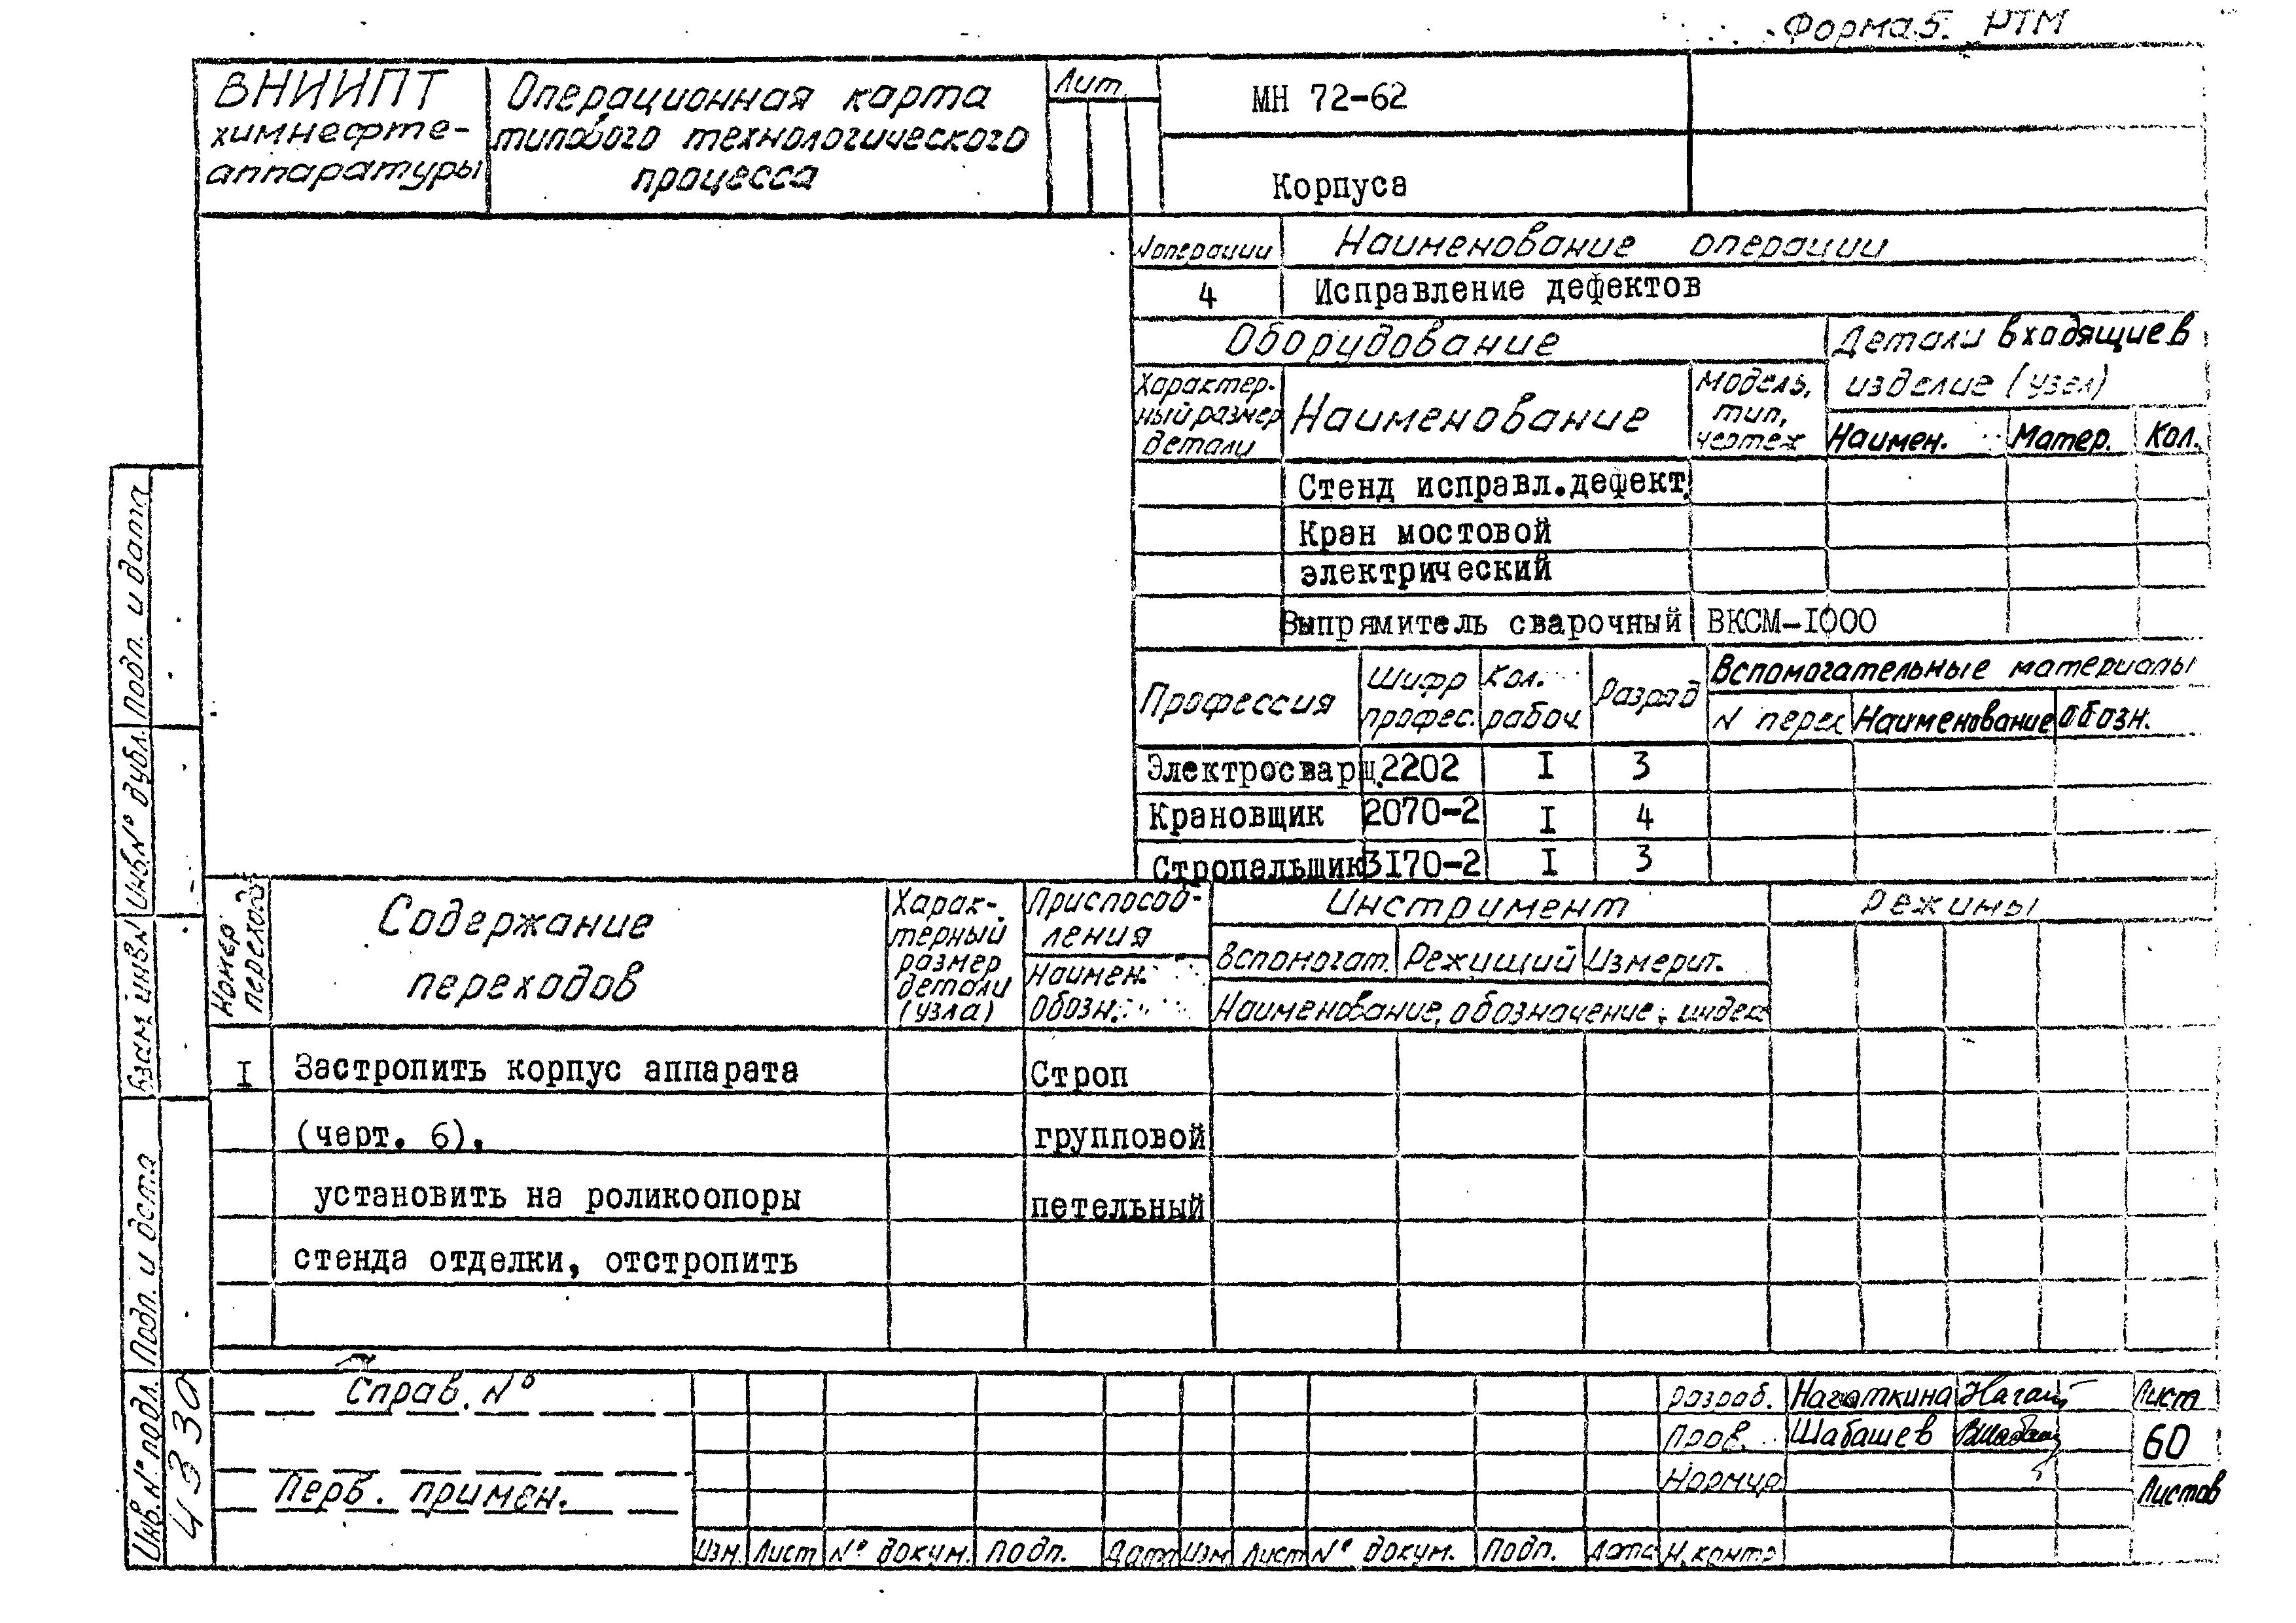 Форма 5. РТМ
ВНИИПТ
химнефте-
аппаратуры
Операционная карта
типового технологического
процесса
Лит
МН 72-62
Корпуса
№ операции
Наименование операции
4
Исправление дефектов
Оборудование
Детали входящие в
изделие (узел)
Характер-
ный размер
детали
Наименование
Модель,
тип,
чертеж
Наимен.
Матер.
Кол.
Стенд исправл.дефект.
Кран мостовой
электрический
Выпрямитель сварочный
ВКСМ-I000
Профессия
Шифр
профес.
Кол.
рабоч.
Разряд
Вспомогательные материалы
N перех
Наименование
обозн.
Электросварщ.
2202
I
3
Крановщик
2070-2
I
4
Стропальщик
3I70-2
I
3
Номер
перехода
Содержание
переходов
Харак-
терный
размер
детали
(узла)
Приспособ-
ления
Наимен.
Обозн.
Инструмент
Вспомогат.
Режищий
Измерит.
Наименование, обозначение, индек
Режимы
I
Застропить корпус аппарата
Строп
(черт. 6),
групповой
установить на роликоопоры
петельный
стенда отделки, отстропить
Справ. №
Перв. примен.
Изм.
Лист
№ докум.
Подп.
Дата
Изм
Лист
№ докум.
Подп.
Дата
Разраб.
Нагаткина
Пров.
Шабашев
Нормир
Н.контр
Лист
60
Листов
Подп. и дата
Инв № дубл.
Взам. инв N
Подп. и дата
Инв. № подл.
4330